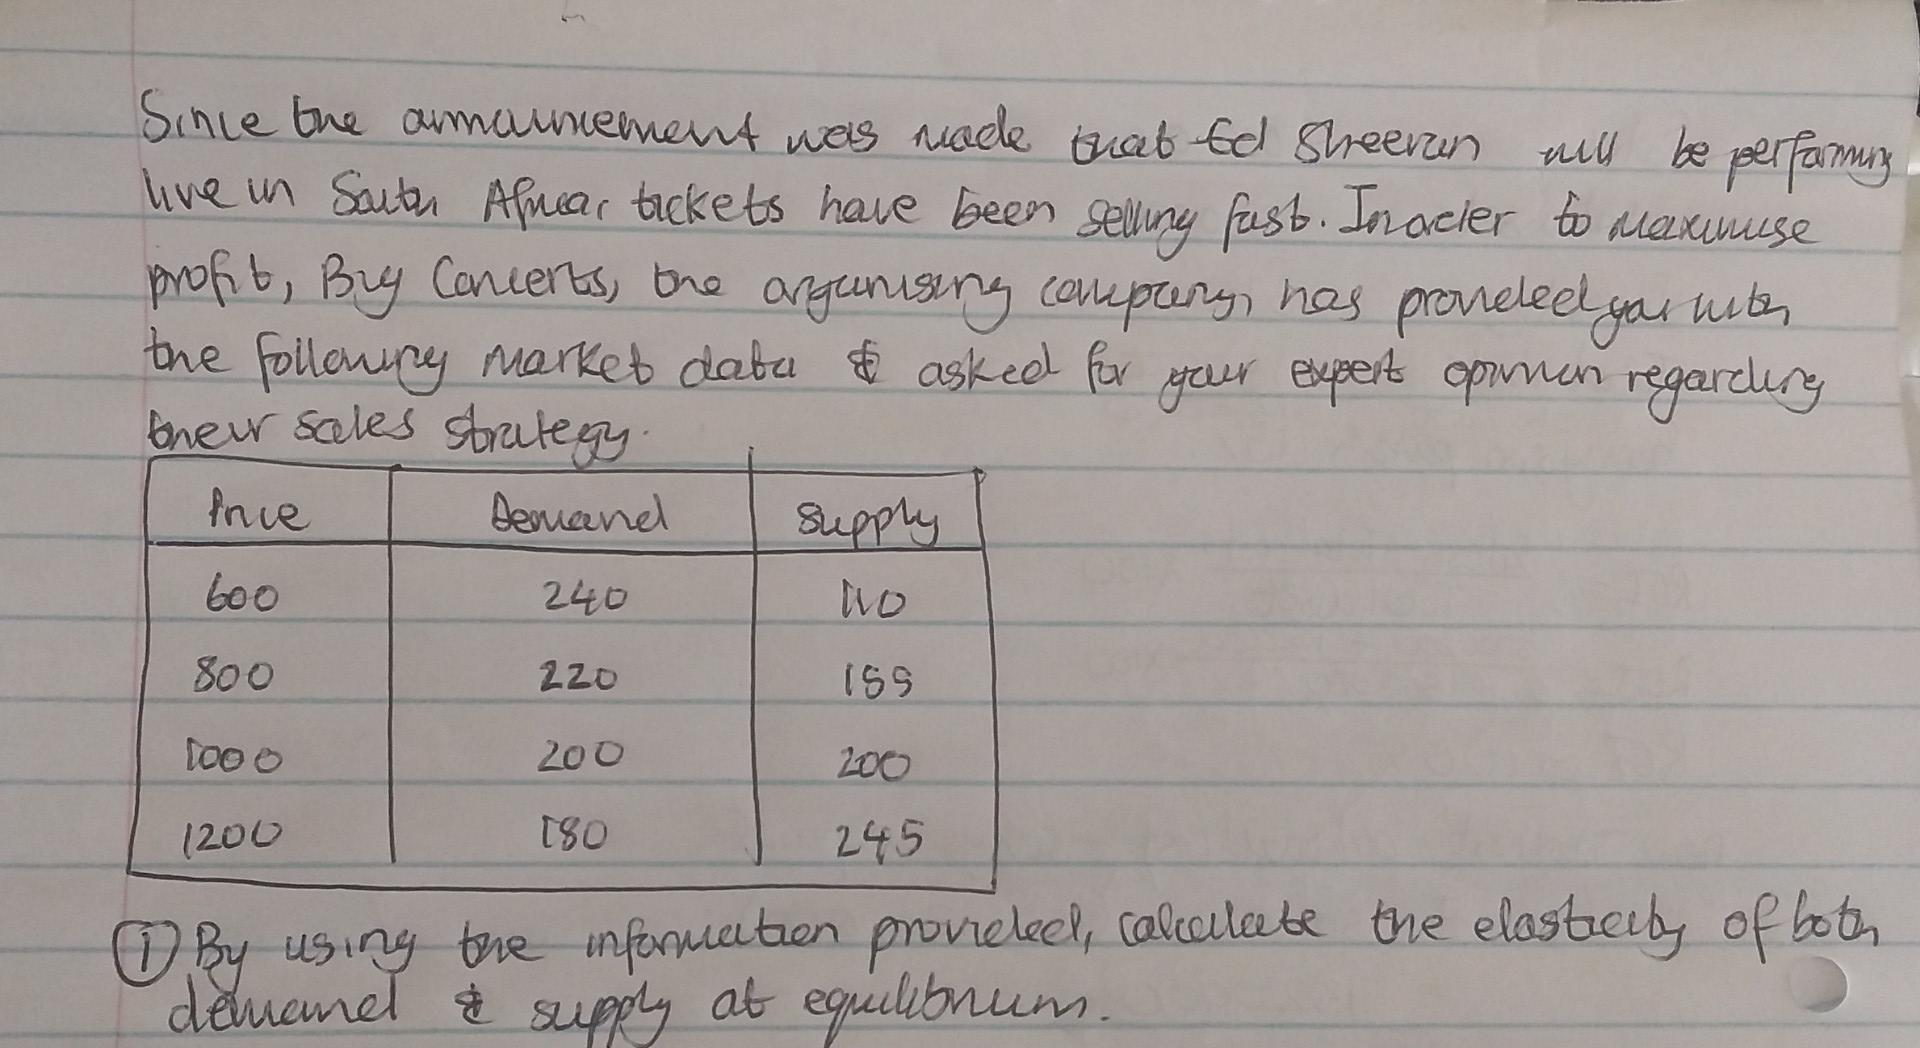 Since the announcement was made that Ed Sheeran will be performing
live in South Africa, tickets have been selling fast. In order to maximise
profit, Big Concerts, the organising company, has provided you with
the following market data & asked for your expert opinion regarding
their sales strategy.
Price Demand Supply
600 240 110
800 220 155
1000 200 200
1200 180 245
① By using the information provided, calculate the elasticity of both
demand & supply at equilibrium.